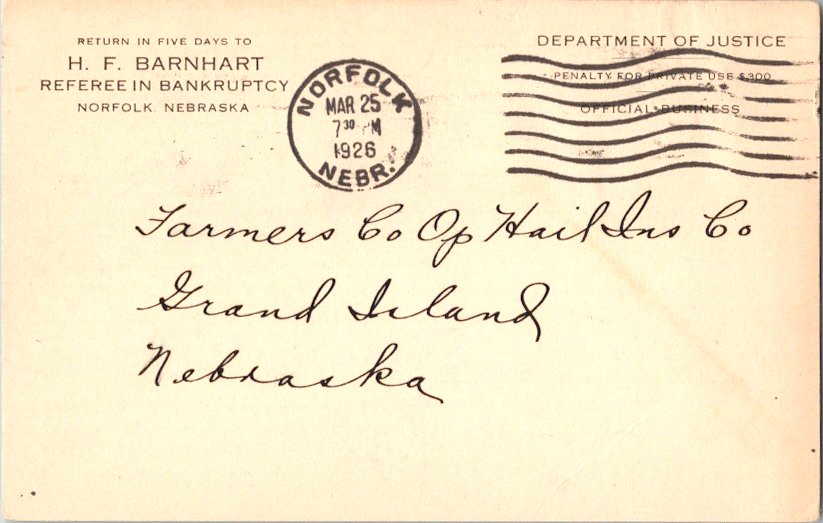 RETURN IN FIVE DAYS TO
H. F. BARNHART
REFEREE IN BANKRUPTCY
NORFOLK, NEBRASKA
NORFOLK
MAR 25
7 30 M
1926
NEBR.
DEPARTMENT OF JUSTICE
PENALTY FOR PRIVATE USE $300
OFFICIAL BUSINESS
Farmers Co Op Hail Ins Co
Grand Island
Nebraska